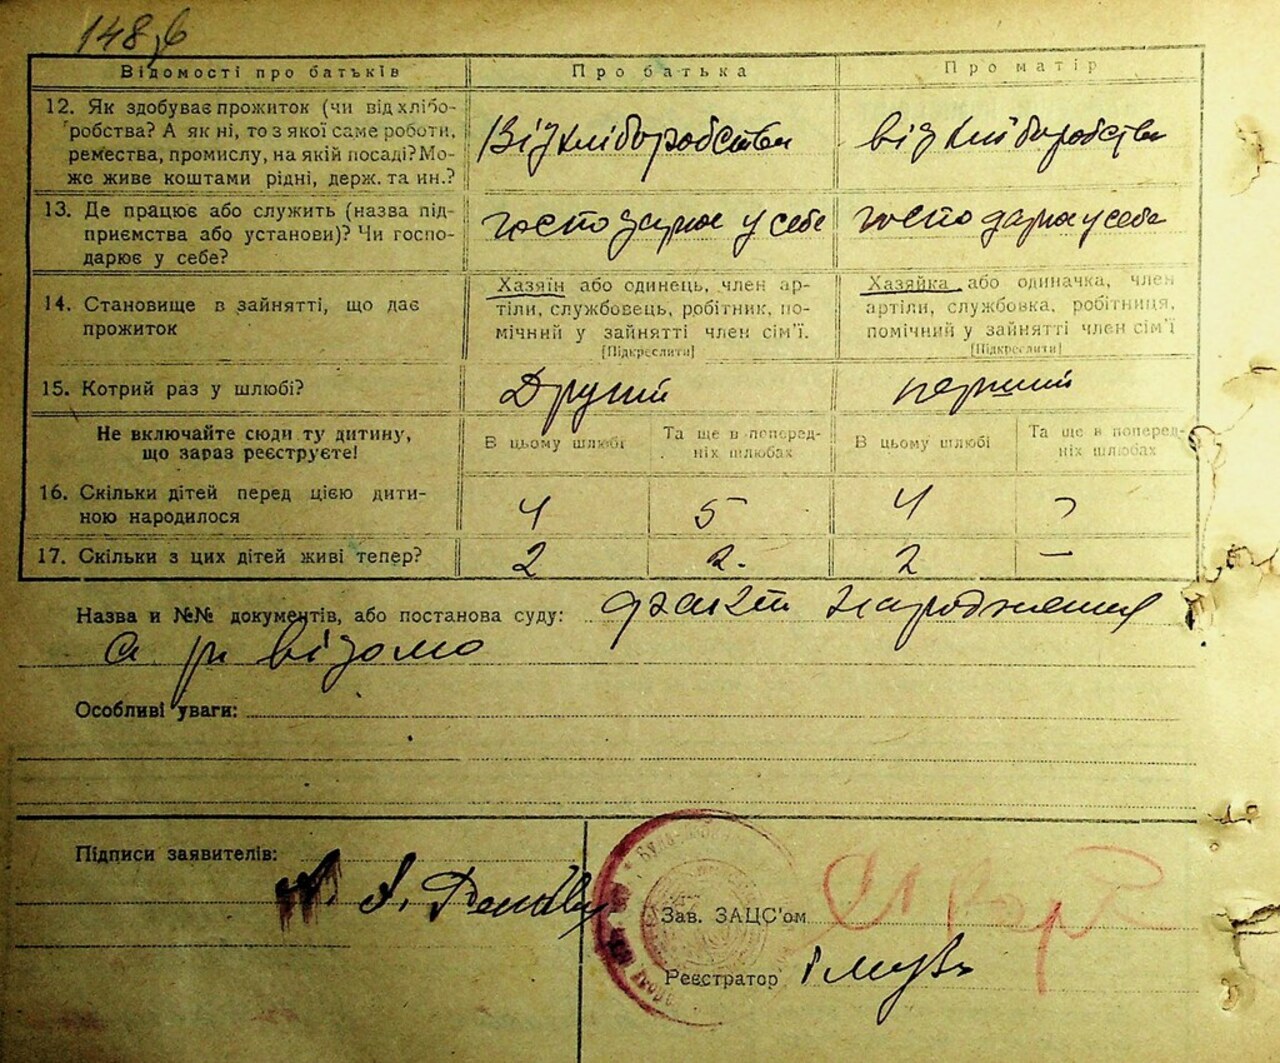 148
Відомості про батьків Про батька Про матір
12. Як здобуває прожиток (чи від хлібо-
робства? А як ні, то з якої саме роботи,
ремества, промислу, на якій посаді? Мо-
же живе коштами рідні, держ. та ин.?
Від хліборобства від хліборобства
13. Де працює або служить (назва під-
приємства або установи)? Чи госпо-
дарює у себе?
господарює у себе господарює у себе
14. Становище в зайнятті, що дає
прожиток
Хазяїн або одинець, член ар-
тіли, службовець, робітник, по-
мічний у зайнятті член сім'ї.
[Підкреслити]
Хазяйка або одиначка, член
артіли, службовка, робітниця,
помічний у зайнятті член сім'ї
[Підкреслити]
15. Котрий раз у шлюбі? Другий перший
Не включайте сюди ту дитину,
що зараз реєструєте!
В цьому шлюбі Та ще в поперед-
ніх шлюбах В цьому шлюбі Та ще в поперед-
ніх шлюбах
16. Скільки дітей перед цією дити-
ною народилося 4 5 4
17. Скільки з цих дітей живі тепер? 2 2. 2 —
Назва и №№ документів, або постанова суду: факт народження
відомо
Особливі уваги:
Підписи заявителів:
Зав. ЗАЦС'ом
Реєстратор